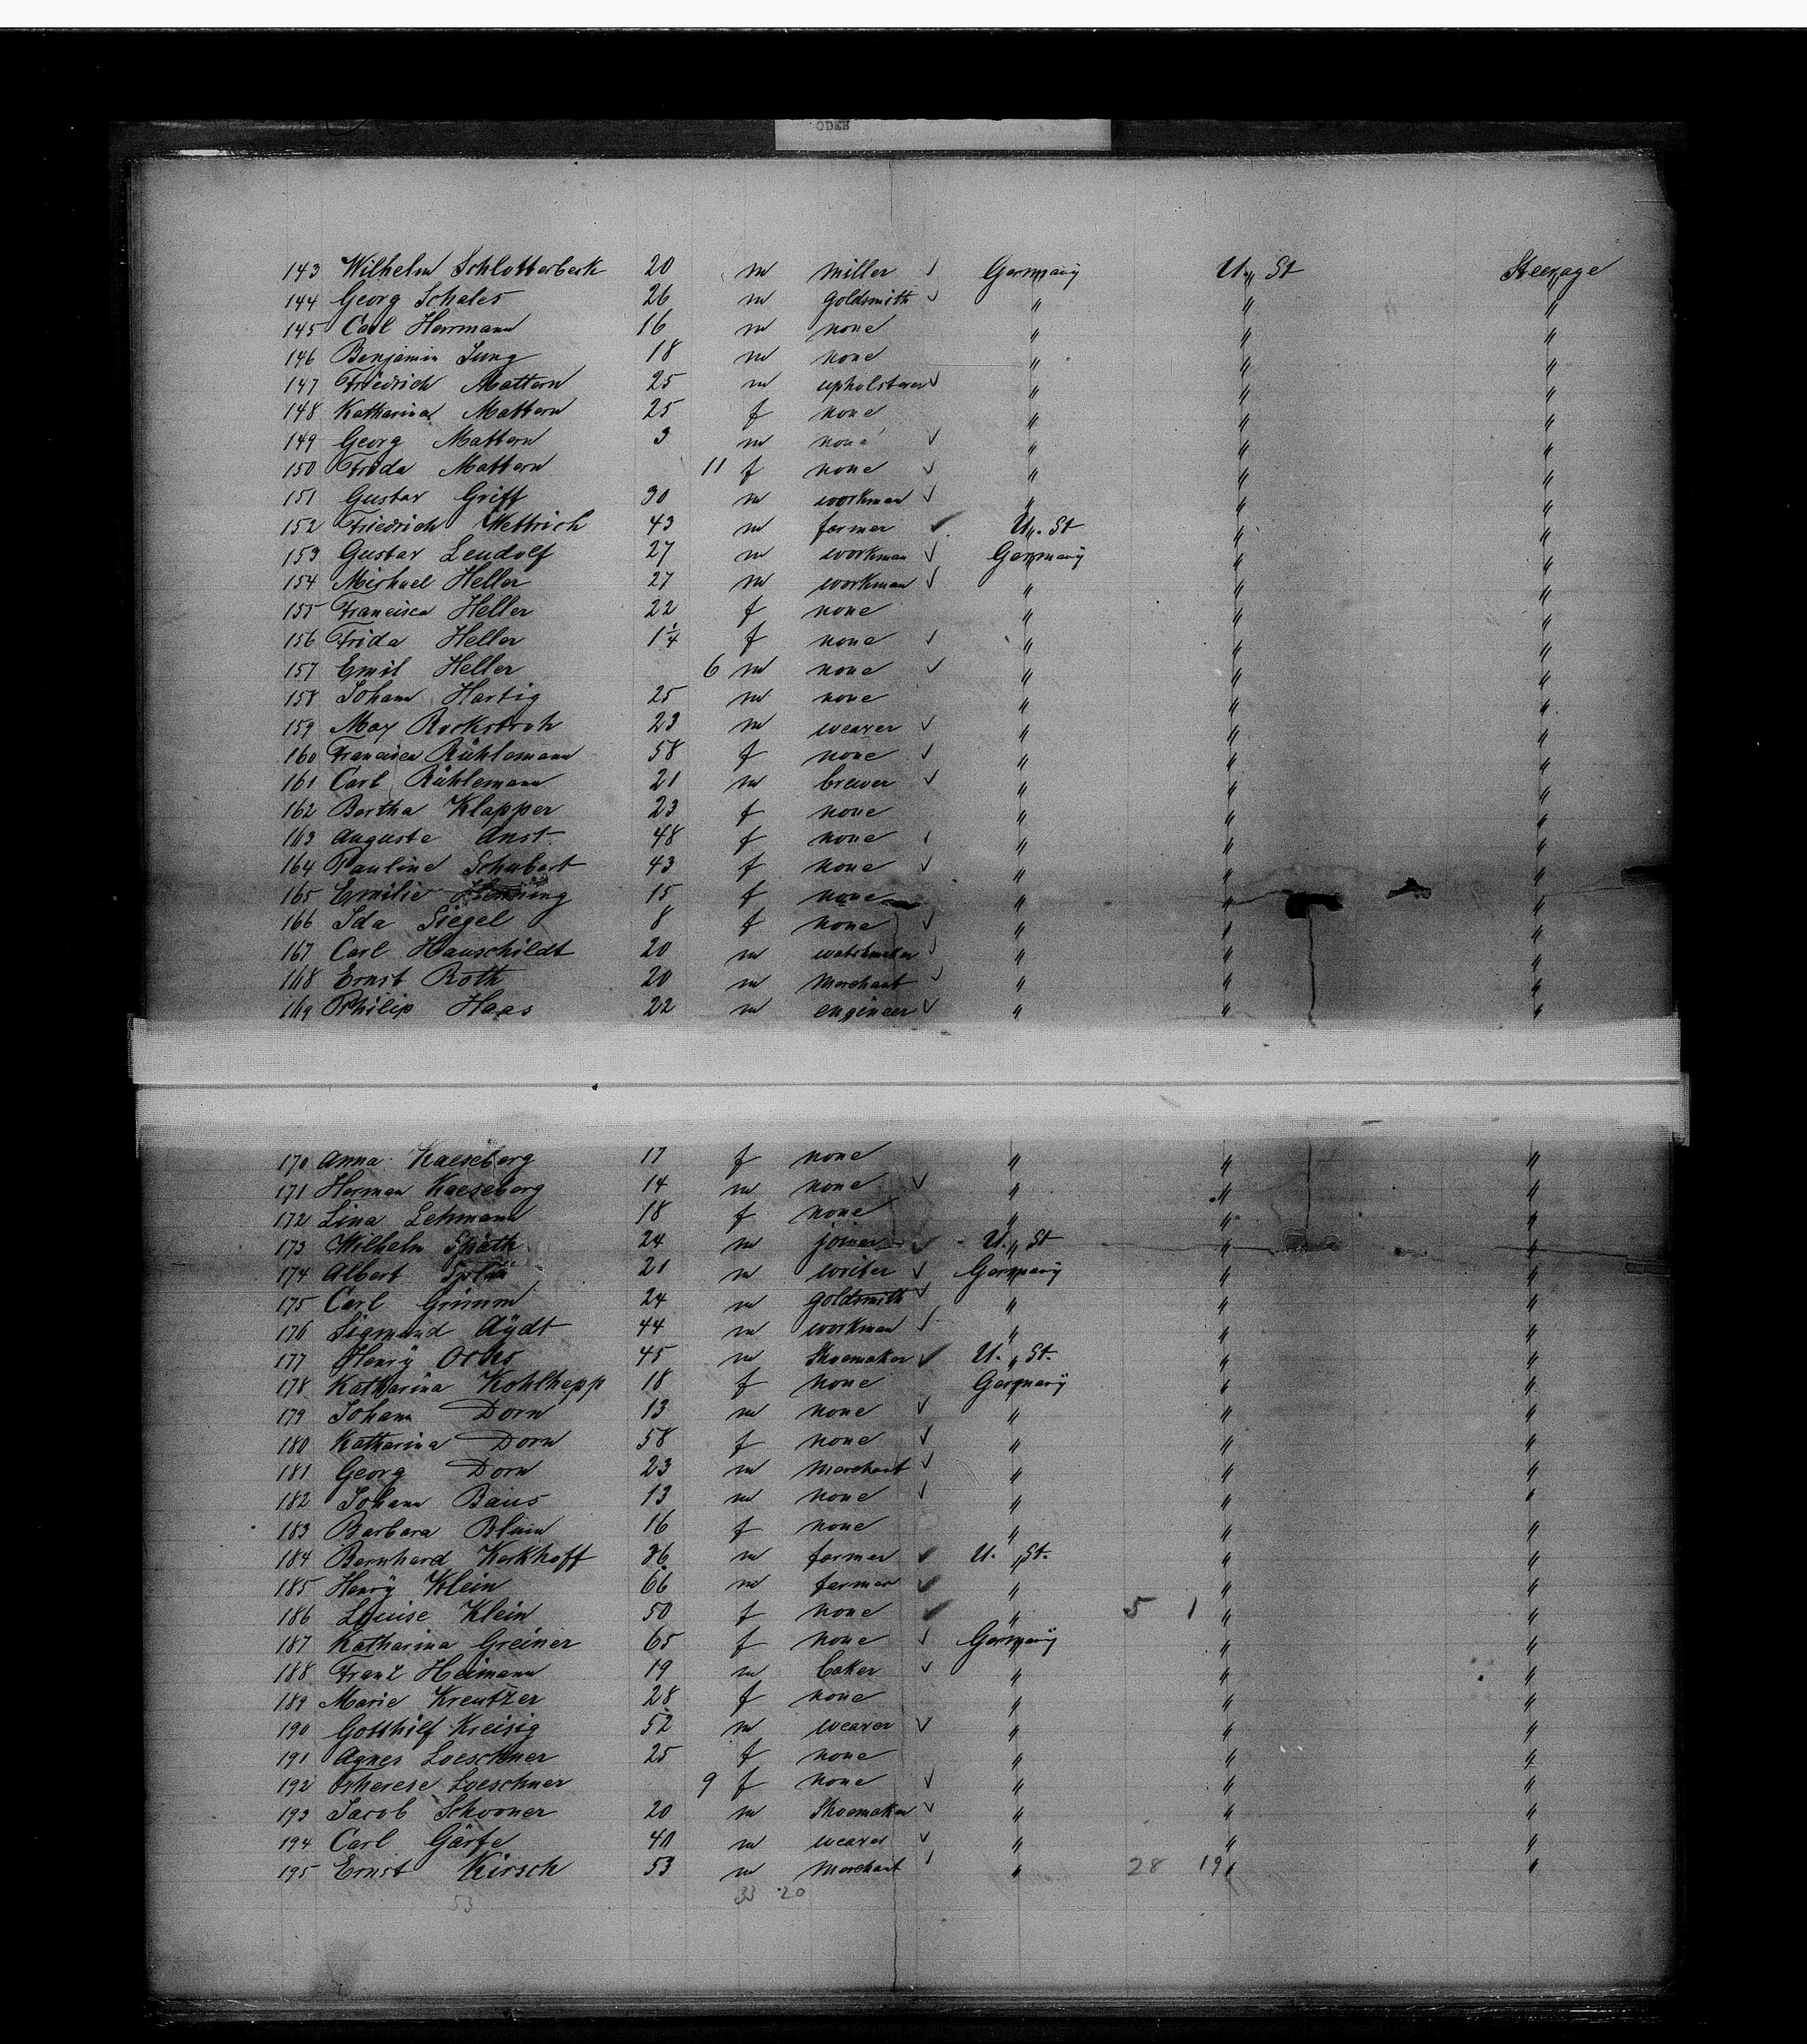 ODEH
143 Wilhelm Schlotterbeck 20 m miller ✓ Germany Un. St Steerage
144 Georg Schales 26 m goldsmith ✓ " " "
145 Carl Herrmann 16 m none " " "
146 Benjamin Jung 18 m none " " "
147 Friedrich Mattern 25 m upholsterer ✓ " " "
148 Katharina Mattern 25 f none " " "
149 Georg Mattern 3 m none ✓ " " "
150 Frida Mattern 11 f none ✓ " " "
151 Gustav Griff 30 m workman ✓ " " "
152 Friedrich Wettrich 43 m farmer ✓ Un. St " "
153 Gustav Leudolf 27 m workman ✓ Germany " "
154 Michael Heller 27 m workman ✓ " " "
155 Francisca Heller 22 f none " " "
156 Frida Heller 1 1/4 f none ✓ " " "
157 Emil Heller 6 m none ✓ " " "
158 Johann Hartig 25 m none " " "
159 Max Rockstroh 23 m weaver ✓ " " "
160 Francisca Rühlemann 58 f none ✓ " " "
161 Carl Rühlemann 21 m brewer ✓ " " "
162 Bertha Klapper 23 f none " " "
163 Auguste Anst 48 f none ✓ " " "
164 Pauline Schubert 43 f none ✓ " " "
165 Emilie 15 f none " " "
166 Ida Siegel 8 f none ✓ " " "
167 Carl Hauschildt 20 m watchmaker ✓ " " "
168 Ernst Roth 20 m merchant ✓ " " "
169 Philip Haas 22 m engineer ✓ " " "
170 Anna Kaeseberg 17 f none " " "
171 Herman Kaeseberg 14 m none ✓ " " "
172 Lina Lehmann 18 f none " " "
173 Wilhelm Späth 24 m joiner ✓ U. St " "
174 Albert 21 m writer ✓ Germany " "
175 Carl Grimm 24 m goldsmith ✓ " " "
176 Sigmund Aÿdt 44 m workman ✓ " " "
177 Henrÿ Ochs 45 m Shoemaker ✓ U. St. " "
178 Katharina Kohlhepp 18 f none Germany " "
179 Johann Dorn 13 m none ✓ " " "
180 Katharina Dorn 58 f none ✓ " " "
181 Georg Dorn 23 m merchant ✓ " " "
182 Johann Baus 13 m none ✓ " " "
183 Barbara Blum 16 f none " " "
184 Bernhard Kerkhoff 36 m farmer ✓ U. St. " "
185 Henrÿ Klein 66 m farmer ✓ " " "
186 Louise Klein 50 f none ✓ " 5 1 " "
187 Katharina Greiner 65 f none ✓ Germany " "
188 Franz Heimann 19 m baker ✓ " " "
189 Marie Kreutzer 28 f none " " "
190 Gotthilf Kreisig 52 m weaver ✓ " " "
191 Agnes Loeschner 25 f none " " "
192 Therese Loeschner 9 f none ✓ " " "
193 Jacob Schooner 20 m Shoemaker ✓ " " "
194 Carl Gärfe 40 m weaver ✓ " " "
195 Ernst Kirsch 53 m merchant ✓ " 28 19 " "
53 33 20